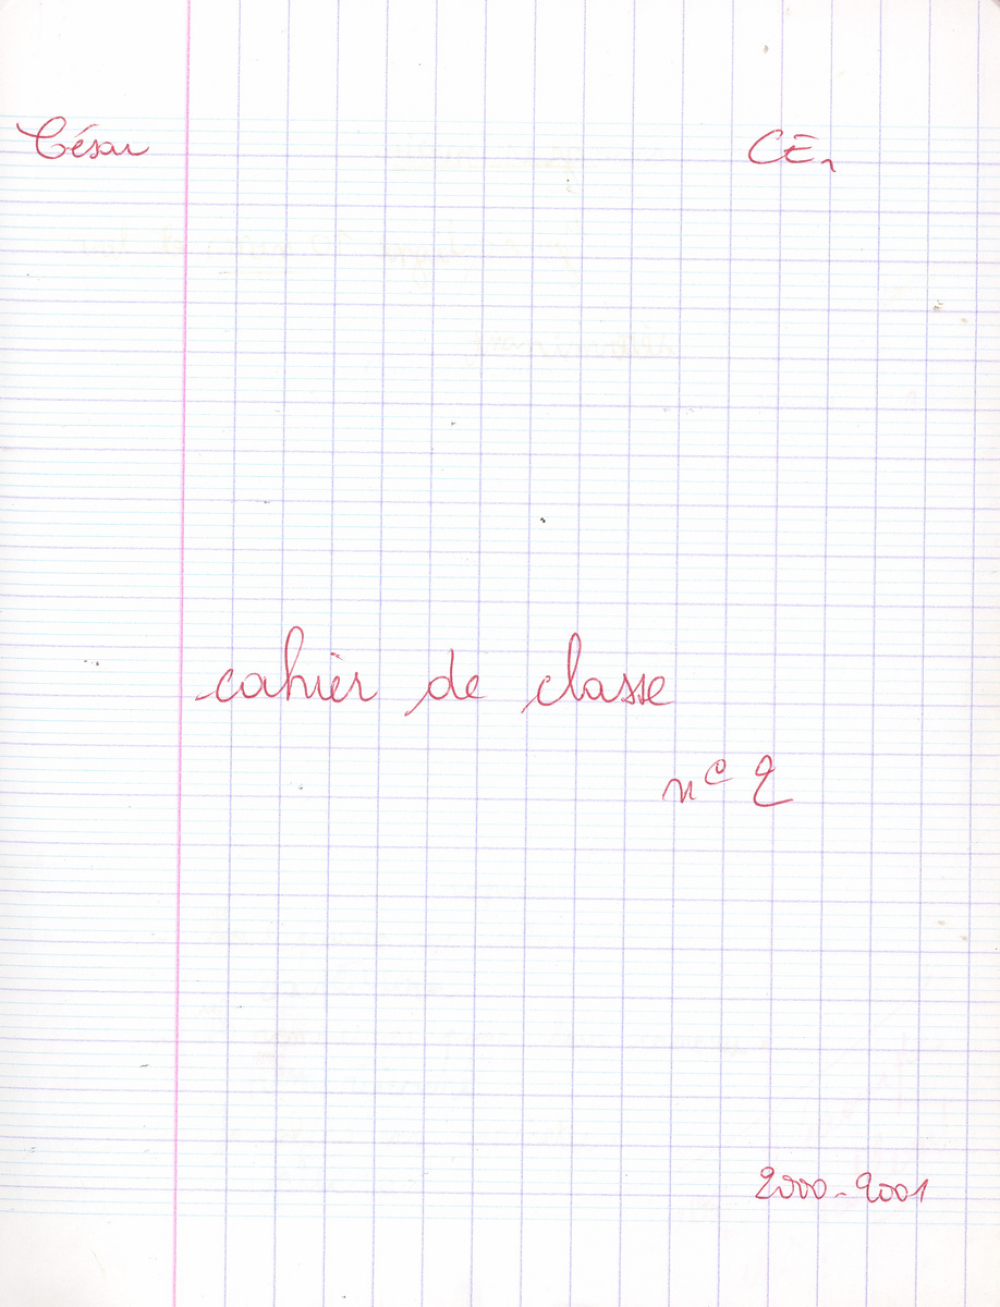 César CE1
cahier de classe
n° 2
2000-2001